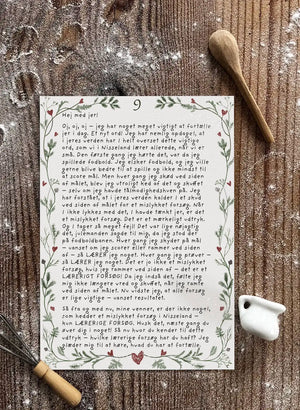 9
Hej med jer!
Oj, oj, oj – jeg har noget meget vigtigt at fortælle
jer i dag. Et nyt ord! Jeg har nemlig opdaget, at
i jeres verden har I helt overset dette vigtige
ord, som vi i Nisseland lærer allerede, når vi er
små. Den første gang jeg hørte det, var da jeg
spillede fodbold. Jeg elsker fodbold, og jeg ville
gerne blive bedre til at spille og ikke mindst til
at score mål. Men hver gang jeg skød ved siden
af målet, blev jeg utroligt ked af det og skuffet
– selv om jeg havde tålmodighedshuen på. Jeg
har forstået, at i jeres verden kalder I et skud
ved siden af målet for et mislykket forsøg. Når
I ikke lykkes med det, I havde tænkt jer, er det
et mislykket forsøg. Det er et mærkeligt udtryk.
Og I tager så meget fejl! Det var lige nøjagtig
det, julemanden sagde til mig, da jeg stod der
på fodboldbanen. Hver gang jeg skyder på mål
– uanset om jeg scorer eller rammer ved siden
af – så LÆRER jeg noget. Hver gang jeg prøver –
så LÆRER jeg noget. Det er jo ikke et mislykket
forsøg, hvis jeg rammer ved siden af – det er et
LÆRERIGT FORSØG! Da jeg indså det, følte jeg
mig ikke længere vred og skuffet, når jeg ramte
ved siden af målet. Nu vidste jeg, at alle forsøg
er lige vigtige – uanset resultatet.
Så fra og med nu, mine venner, er der ikke noget,
der hedder et mislykket forsøg i Nisseland –
kun LÆRERIGE FORSØG. Husk det, næste gang du
øver dig i noget! Så nu hvor du kender til dette
udtryk – hvilke lærerige forsøg har du haft? Jeg
glæder mig til at høre, hvad du har at fortælle.